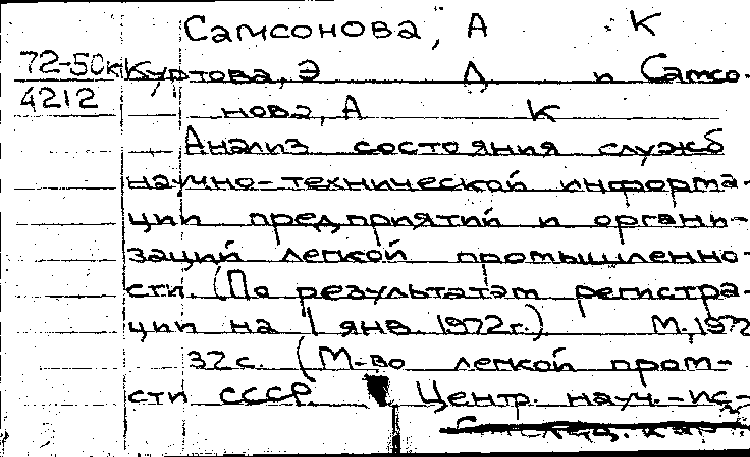 Самсонова, А К
72-50к Куртова, Э Д и Самсо-
4212 нова, А К
Анализ состояния служб
научно-технической информа-
ции предприятий и органи-
заций легкой промышленно-
сти. (По результатам регистра-
ции на 1 янв. 1972г.) М., 1972
32 с. (М-во легкой пром-
сти СССР. Центр. науч.-ис-